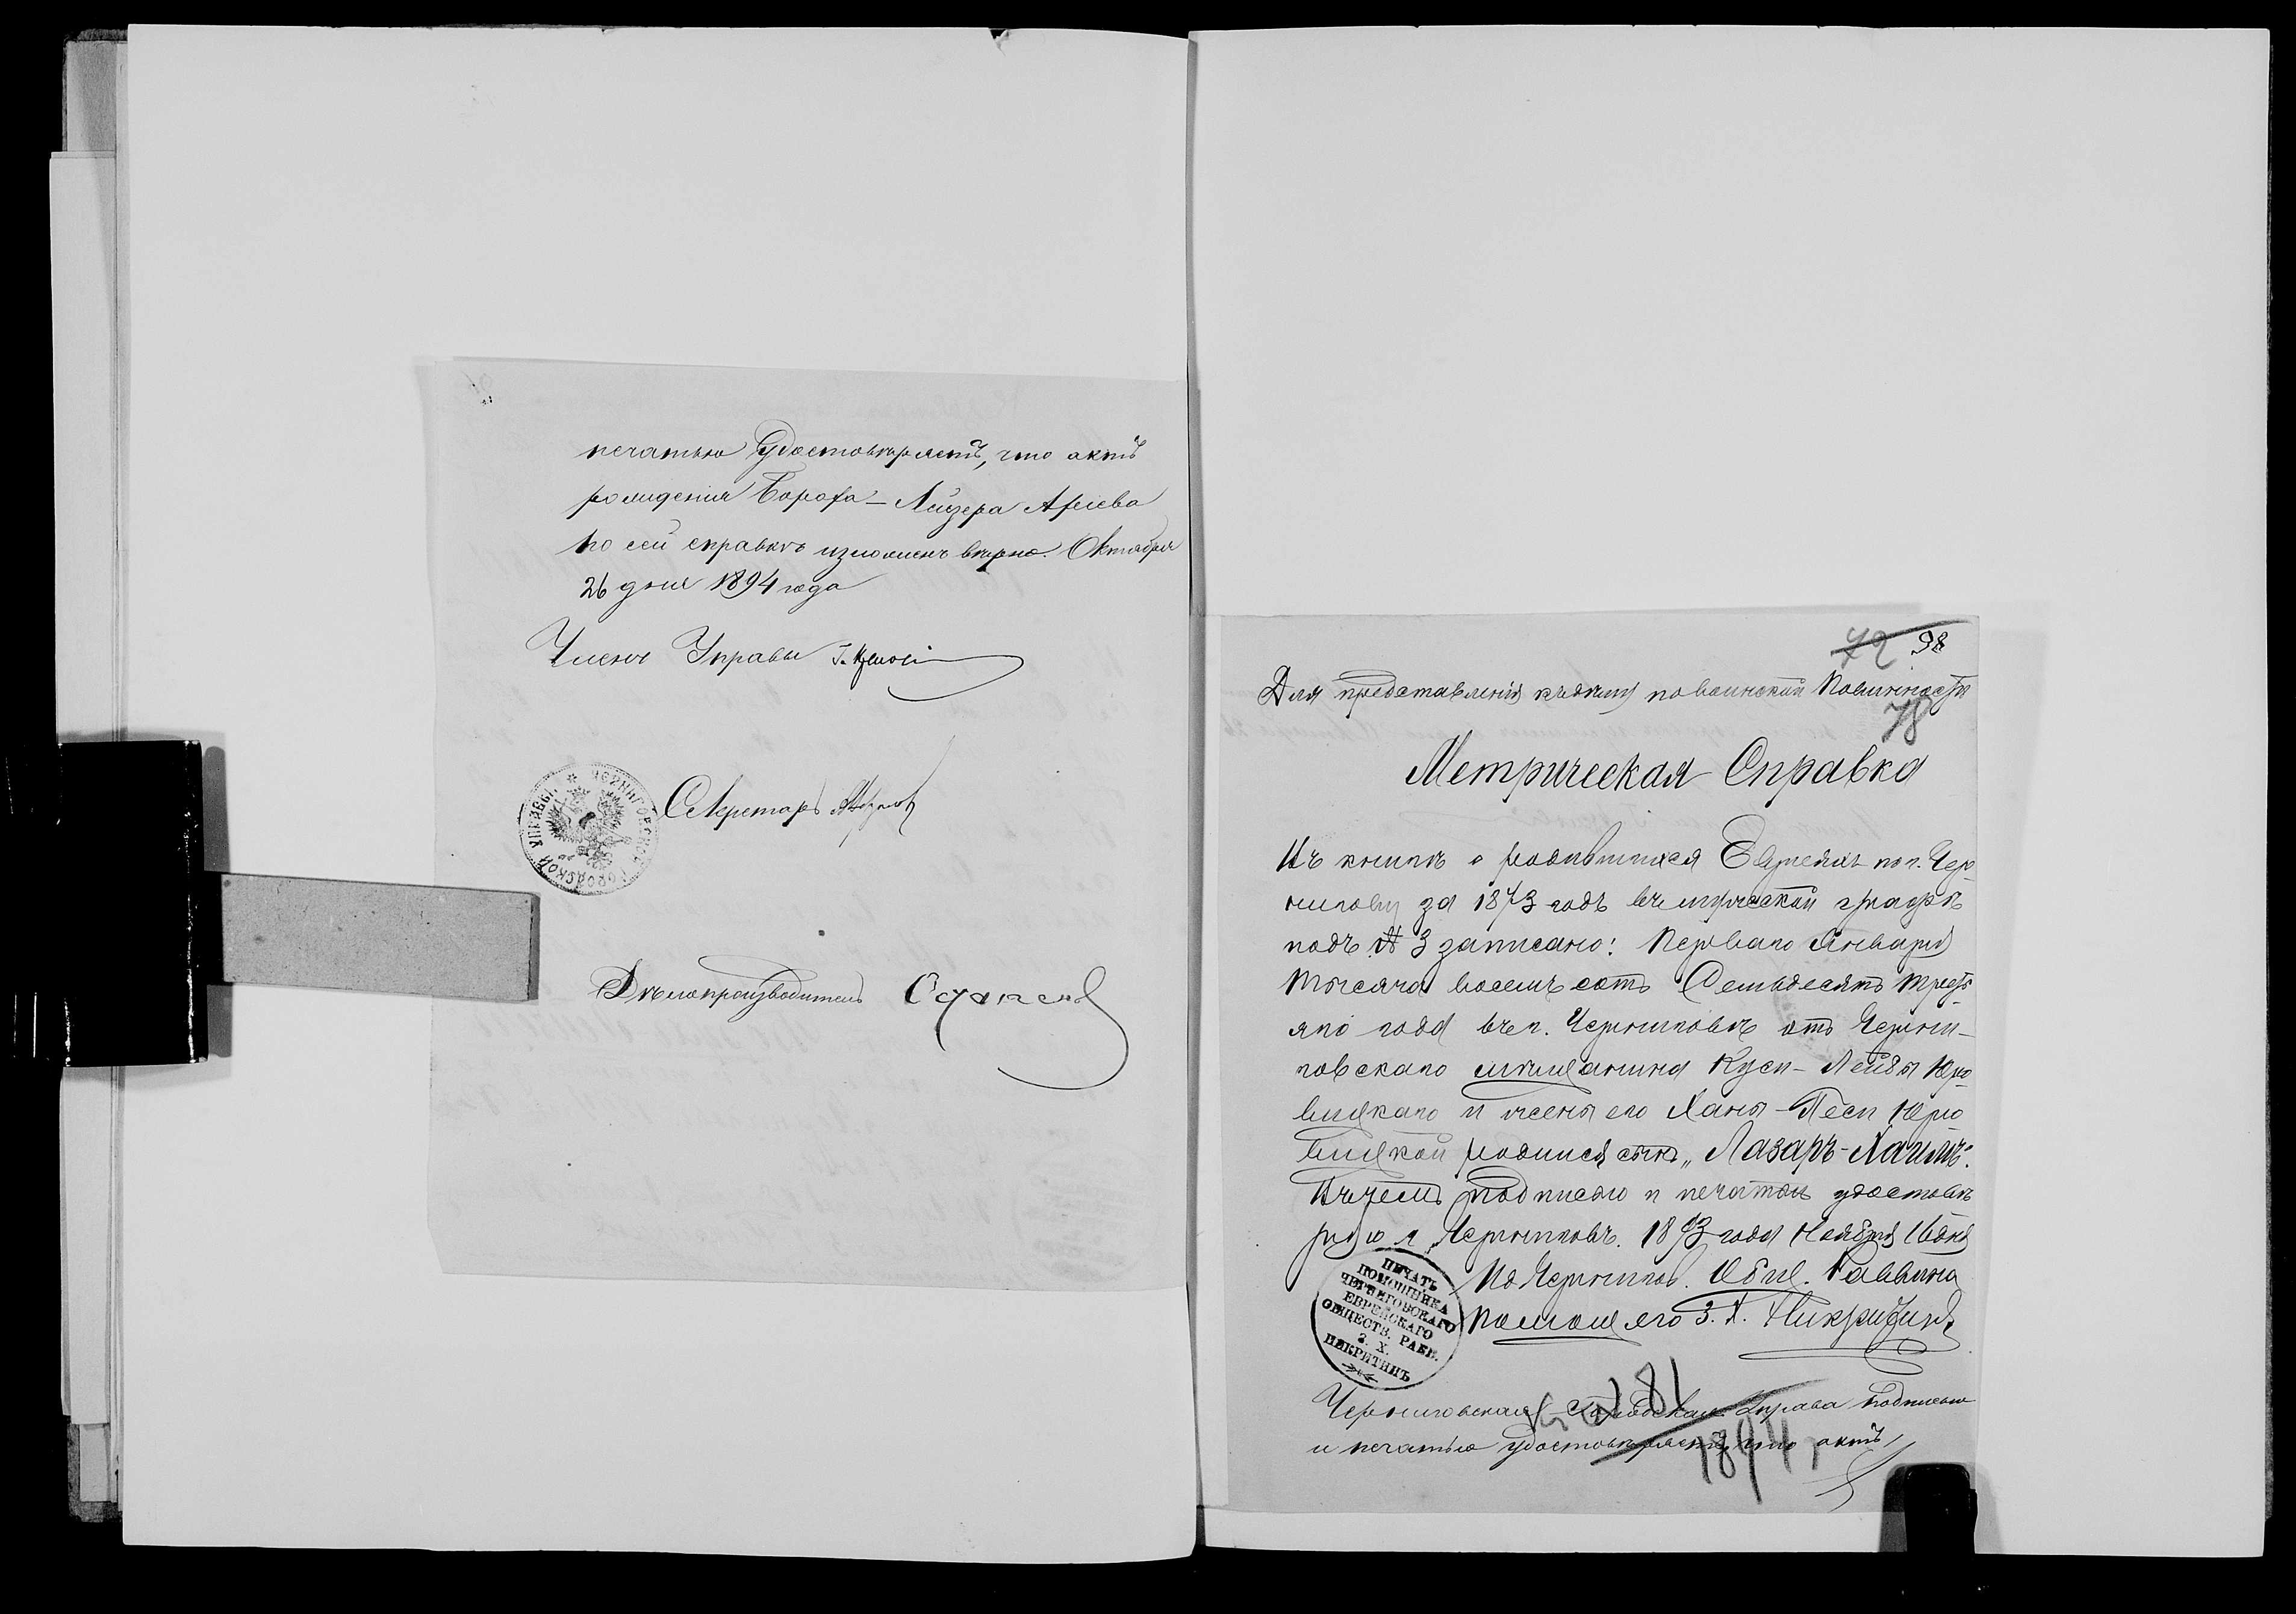 печатью удостовѣряетъ, что актъ
рожденія Бороха-Лейзера Аріева
по сей справкѣ изложенъ вѣрно. Октября
26 дня 1894 года
Членъ Управы
Секретарь
ЧЕРНИГОВСКОЙ ГОРОДСКОЙ УПРАВЫ
Дѣлопроизводитель
72 98
Для представленія къ дѣлу по воинской повинности
78
Метрическая Справка
Въ книгѣ о родившихся Евреяхъ по г. Чер-
нигову за 1873 годъ въ мужеской графѣ
подъ № 3 записано: Перваго Января
тысяча восемъ сотъ Семьдесятъ треть-
яго года въ г. Черниговѣ отъ Черни-
говскаго мѣщанина Куси-Лейбы Юро-
вицкаго и жены его Ханы-Песи Юро-
вицкой родился сынъ „Лазарь-Хаимъ".
Въ чемъ подписью и печатью удостовѣ-
ряю г. Черниговъ. 1893 года Ноября 16 дня
За Чернигов. Общ. Раввина
помощ его З. Х. Никритинъ
ПЕЧАТЬ
ПОМОЩНИКА
ЧЕРНИГОВСКАГО
ЕВРЕЙСКАГО
ОБЩЕСТВ. РАВВ.
З. Х.
НИКРИТИНЪ
81
Черниговская Городская Управа подписью
и печатью удостовѣряетъ, что актъ
1894